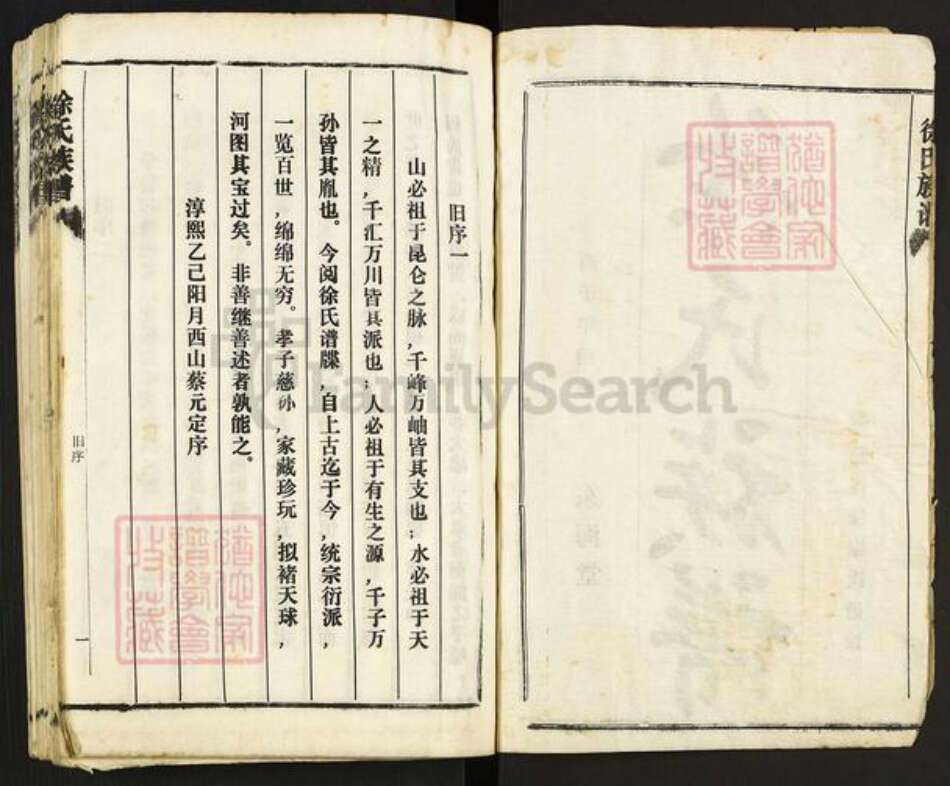 徐氏族谱
旧序一
山必祖于昆仑之脉，千峰万岫皆其支也；水必祖于天
一之精，千汇万川皆其派也；人必祖于有生之源，千子万
孙皆其胤也。今阅徐氏谱牒，自上古迄于今，统宗衍派，
一览百世，绵绵无穷。孝子慈孙，家藏珍玩，拟褚天球，
河图其宝过矣。非善继善述者孰能之。
淳熙乙己阳月西山蔡元定序
徐氏族谱
旧序
一
FamilySearch